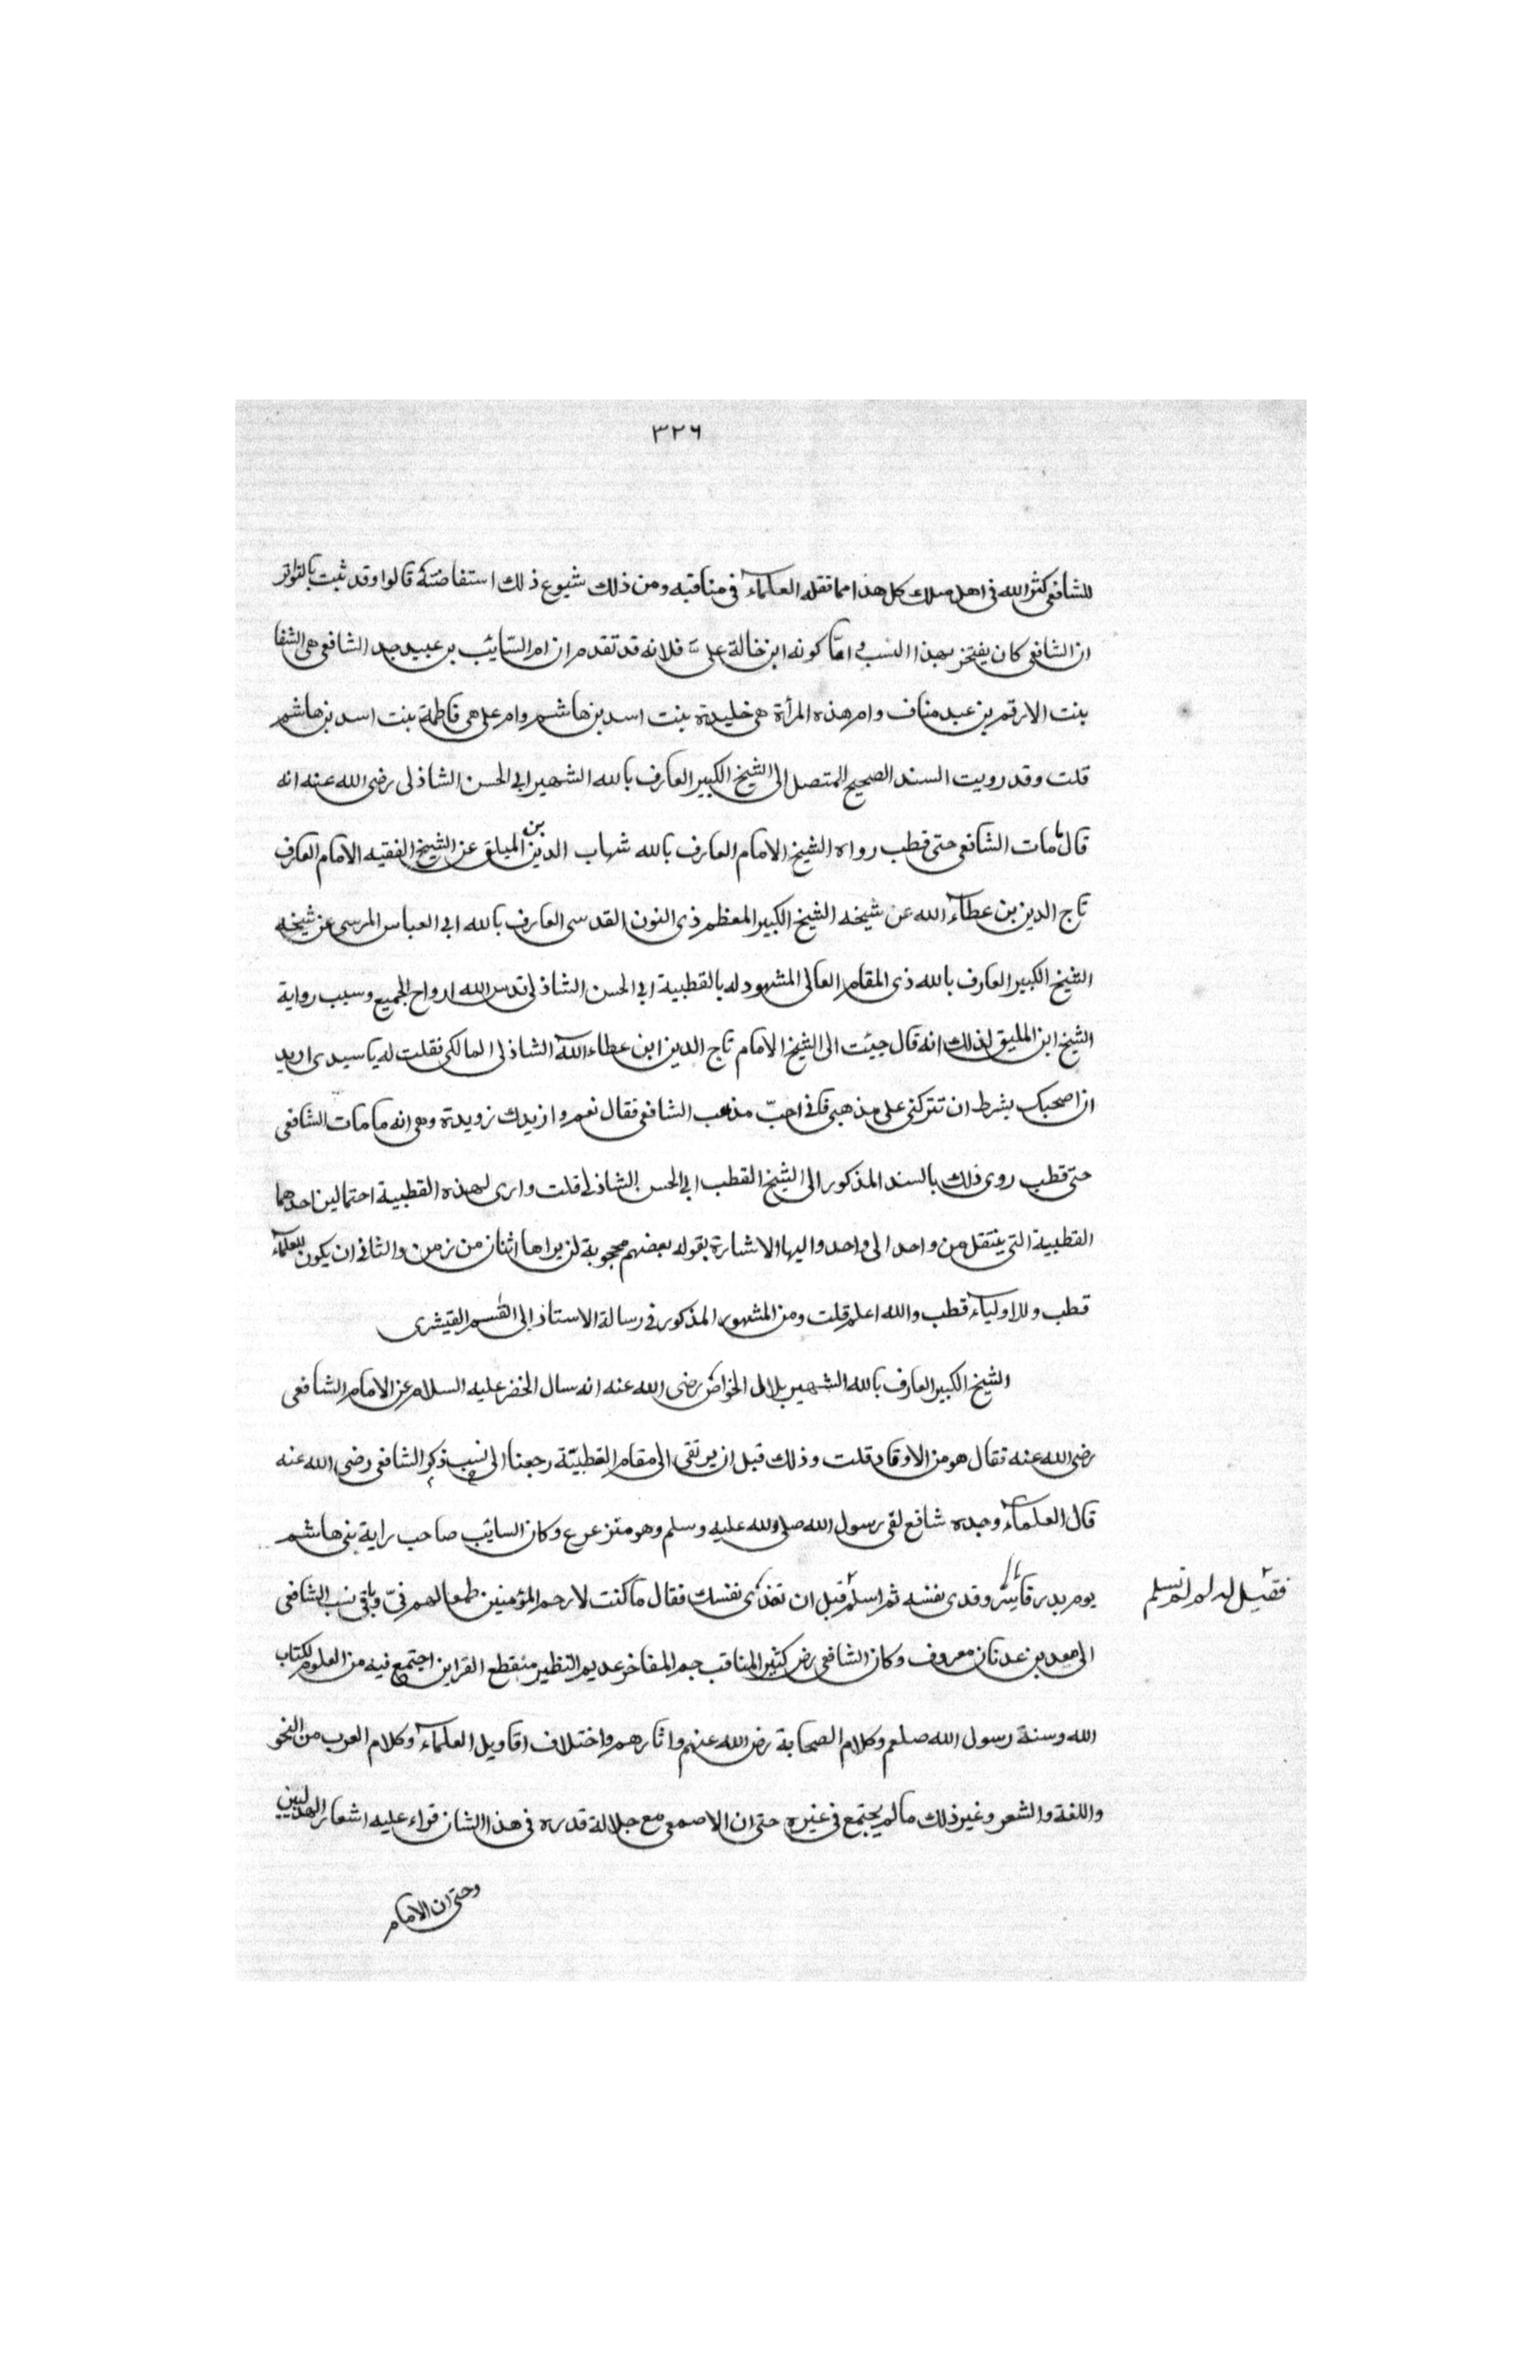 ٣٢٦
للشافعي كثر الله في اهل ملاك كل هذا مما نقله العلماء في مناقبه ومن ذلك شيوع ذلك استفاضته قالوا وقد ثبت بالتواتر
ان الشافعي كان يفتخر بهذا النسب واما كونه ابن خالة على فلانه قد تقدم ان ام السائب بن عبيد جد الشافعي هى الشفا
بنت الارقم بن عبد مناف وام هذه المرأة هي خليدة بنت اسد بن هاشم وام على هى فاطمة بنت اسد بن هاشم
قلت وقد رويت السند الصحيح المتصل الى الشيخ الكبير العارف بالله الشهير ابى الحسن الشاذلى رضى الله عنه انه
قال ما مات الشافعي حتى قطب رواه الشيخ الامام العارف بالله شهاب الدين بن الميلق عن الشيخ الفقيه الامام العارف
تاج الدين بن عطاء الله عن شيخه الشيخ الكبير المعظم ذى النون القدسى العارف بالله ابى العباس المرسى عن شيخه
الشيخ الكبير العارف بالله ذى المقام العالى المشهود له بالقطبية ابى الحسن الشاذلى قدس الله ارواح الجميع وسبب رواية
الشيخ ابن المليق لذلك انه قال جيئت الى الشيخ الامام تاج الدين ابن عطاء الله الشاذلى المالكى فقلت له يا سيدى اريد
ان اصحبك بشرط ان تتركنى على مذهبى فانى احبّ مذهب الشافعى فقال نعم وازيدك زويدة وهى انه ما مات الشافعى
حتى قطب روى ذلك بالسند المذكور الى الشيخ القطب ابى الحسن الشاذلى قلت وارى لهذه القطبية احتمالين احدهما
القطبية التى ينتقل من واحد الى واحد واليها الاشارة بقوله بعضهم محجوبة لن يراها اثنان من زمن والثانى ان يكون للعلماء
قطب وللاولياء قطب والله اعلم قلت ومن المشهور المذكور فى رسالة الاستاذ ابى القسم القيشرى
الشيخ الكبير العارف بالله الشهير بلال الخواص رضى الله عنه انه سال الخضر عليه السلام عن الامام الشافعى
رضى الله عنه فقال هو من الاوتاد قلت وذلك قبل ان يرتقى الى مقام القطبيّة رجعنا الى نسب ذكر الشافعى رضى الله عنه
قال العلماء وجده شافع لقى رسول الله صلى الله عليه وسلم وهو مترعرع وكان السايب صاحب راية بنى هاشم
يوم بدر فاسر وفدى نفسه ثم اسلم قبل ان تفذى نفسك فقال ما كنت لارحم المؤمنين طمعا لهم فىّ وباقى نسب الشافعى
فقيل له لم لم تسلم
الى معد بن عدنان معروف وكان الشافعى رض كثير المناقب جم المفاخر عديم النظير منقطع القرابن اجتمع فيه من العلوم لكتاب
الله وسنة رسول الله صلعم وكلام الصحابة رض الله عنهم واثارهم واختلاف اقاويل العلماء وكلام العرب من النحو
واللغة والشعر وغير ذلك ما لم يجتمع فى غيره حتى ان الاصمعى مع جلالة قدره فى هذا الشان قراء عليه اشعار الهذليين
وحتى ان الامام